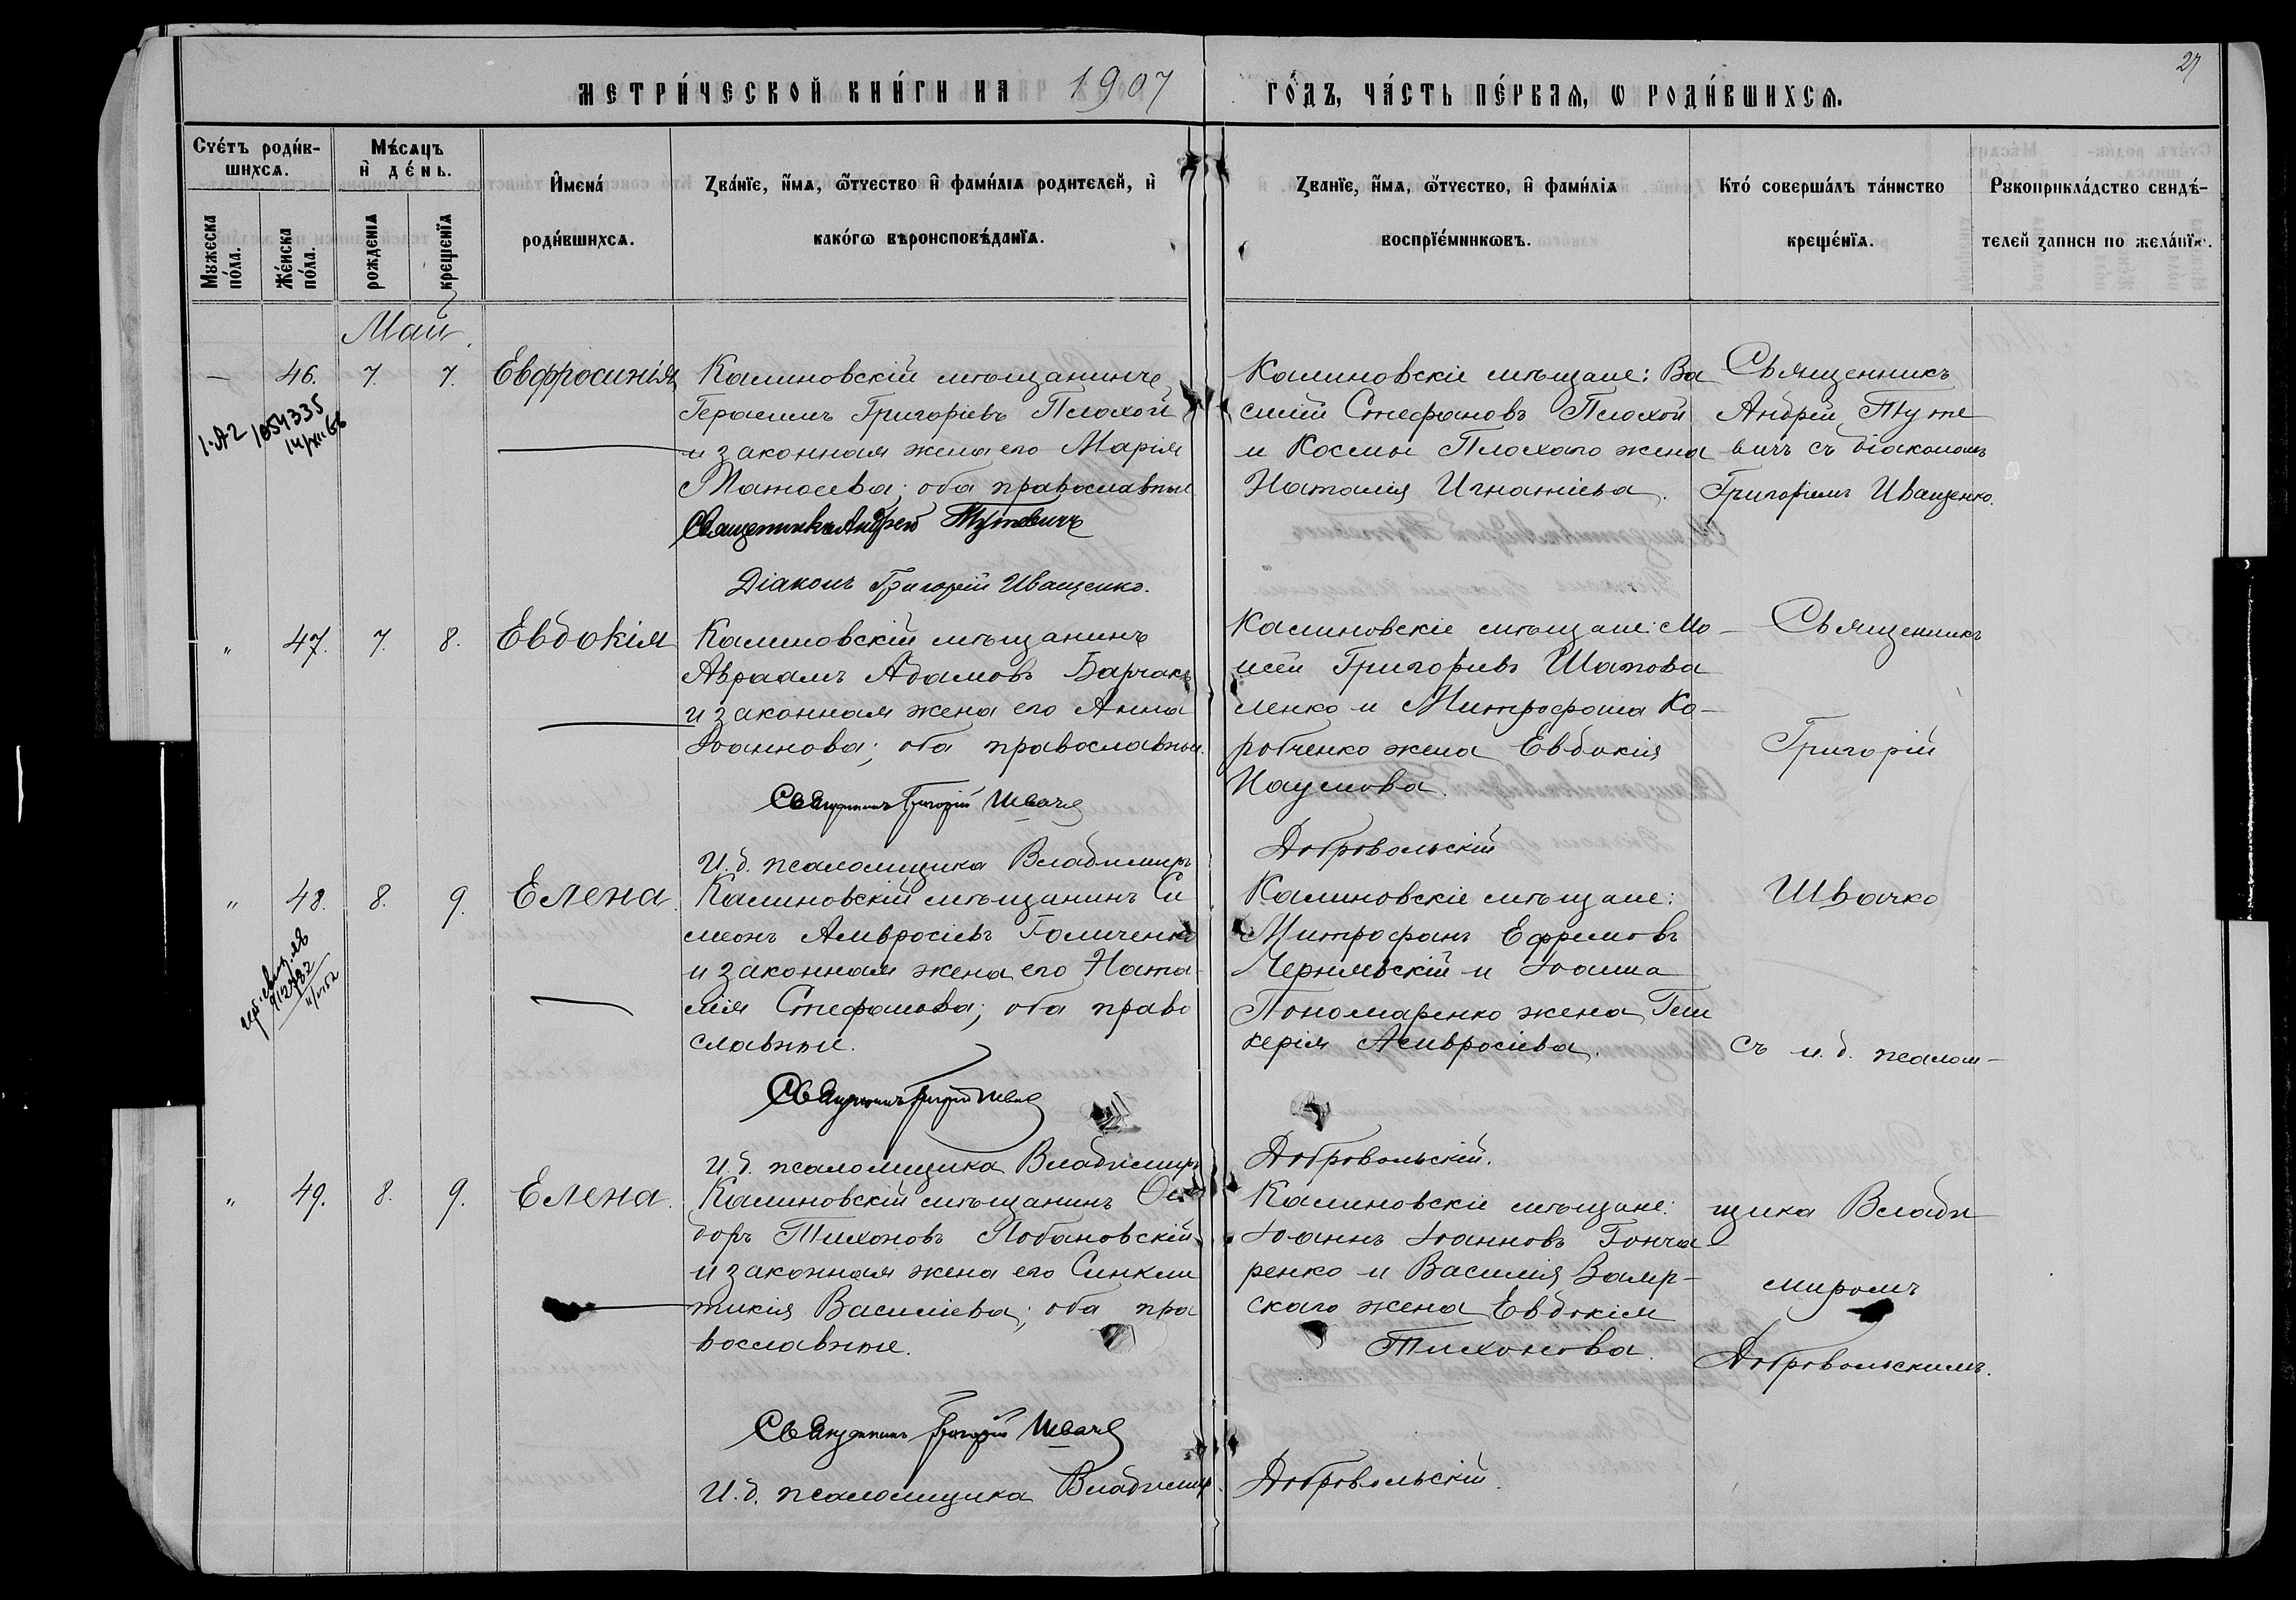 МЕТРИ́ЧЕСКОЙ КНИ́ГИ НА 1907 ГО́ДЪ, ЧА́СТЬ ПЕ́РВАЯ, Ѡ РОДИ́ВШИХСЯ.
27
Сче́тъ роди́в-
шихся.
Мужеска по́ла.
Же́нска по́ла.
Мѣ́сяцъ
и҆ де́нь.
рожденїя
крещенїя
И҆мена́
роди́вшихся.
Зва́нїе, и҆́мя, ѻ҆́тчество и҆ фами́лїя родителей, и҆
како́гѡ вѣроисповѣ́данїя.
Зва́нїе, и҆́мя, ѻ҆́тчество, и҆ фами́лїя
воспрїе́мникѡвъ.
Кто́ соверша́лъ та́инство
креще́нїя.
Рукоприкла́дство свидѣ́-
телей записи по жела́нїю.
Май
— 46. 7. 7. Евфросинія
1054335
Калиновскій мѣщанинъ
Герасимъ Григоріевъ Плохой
и законная жена его Марія
оба православные
Священникъ Андрей Тутевичъ
Діаконъ Григорій Иващенко.
Калиновскіе мѣщане: Ва
силій Стефановъ Плохой
и Космы Плохаго жена
Наталія Игнатіева.
Священникъ
Андрей Туте
вичъ съ діакономъ
Григоріемъ Иващенко.
" 47. 7. 8. Евдокія
Калиновскій мѣщанинъ
Авраамъ Адамовъ Барчакъ
и законная жена его Анна
Іоаннова; оба православные.
Священникъ Григорій Швачко
И.д. псаломщика Владимиръ
Калиновскіе мѣщане: Мо-
исей Григорьевъ Шапова
ленко и Митрофана Ко-
робченко жена Евдокія
Наумова.
Добровольскій
Священникъ
Григорій
" 48. 8. 9. Елена.
Калиновскій мѣщанинъ Си
меонъ Амвросіевъ Гомиченко
и законная жена его Ната-
лія Стефанова; оба право
славные.
Священникъ Григорій Швачко
И.д. псаломщика Владимиръ
Калиновскіе мѣщане:
Митрофанъ Ефремовъ
Чернявскій и Іоанна
Пономаренко жена Гли
керія Амвросіева.
Добровольскій.
Швачко
съ и.д. псалом-
" 49. 8. 9. Елена.
Калиновскій мѣщанинъ Ѳео
доръ Тихоновъ Лобановскій
и законная жена его Синкли
тикія Василіева; оба пра
вославные.
Священникъ Григорій Швачко
И.д. псаломщика Владимир.
Калиновскіе мѣщане:
Іоаннъ Іоанновъ Гонча
ренко и Василія
скаго жена Евдокія
Тихонова.
Добровольскій.
щика Влади
миромъ
Добровольскимъ.